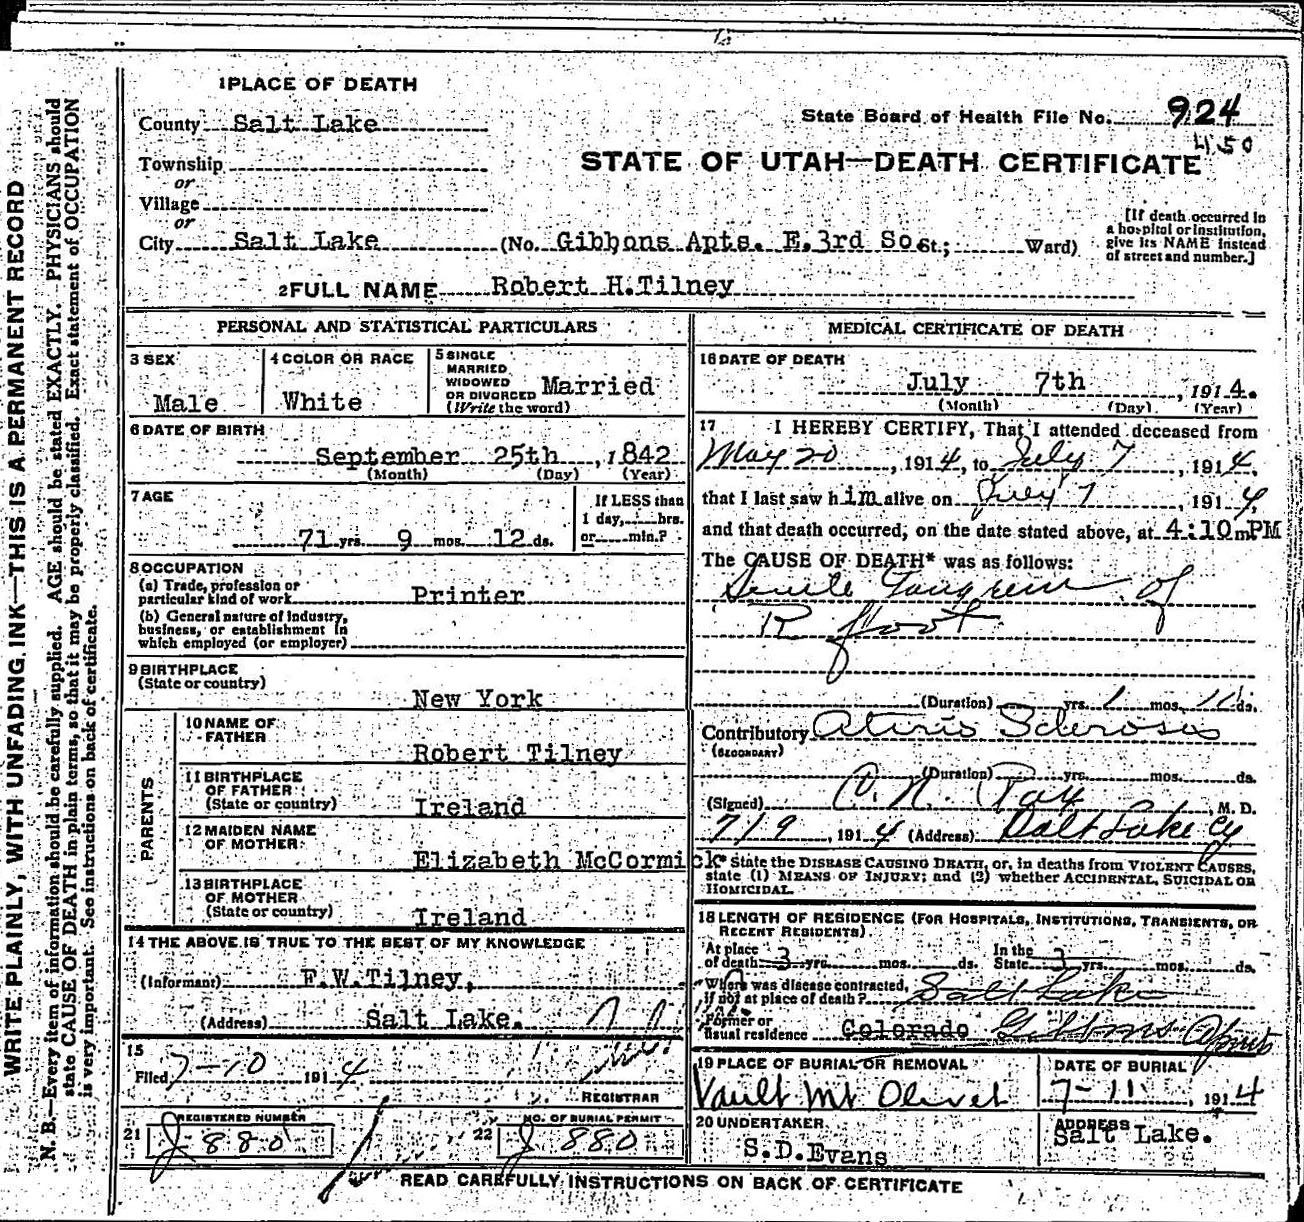 1 PLACE OF DEATH
County Salt Lake
State Board of Health File No. 924
450
Township
or
Village
or
City Salt Lake (No. Gibbons Apts. E. 3rd So. St.; Ward)
STATE OF UTAH—DEATH CERTIFICATE
[If death occurred in
a hospital or institution,
give its NAME instead
of street and number.]
2 FULL NAME Robert H. Tilney
PERSONAL AND STATISTICAL PARTICULARS
3 SEX
Male
4 COLOR OR RACE
White
5 SINGLE
MARRIED
WIDOWED
OR DIVORCED
(Write the word)
Married
6 DATE OF BIRTH
September 25th, 1842
(Month) (Day) (Year)
7 AGE
71 yrs. 9 mos. 12 ds.
If LESS than
1 day, hrs.
or min.?
8 OCCUPATION
(a) Trade, profession or
particular kind of work Printer
(b) General nature of industry,
business, or establishment in
which employed (or employer)
9 BIRTHPLACE
(State or country)
New York
PARENTS
10 NAME OF
FATHER
Robert Tilney
11 BIRTHPLACE
OF FATHER
(State or country)
Ireland
12 MAIDEN NAME
OF MOTHER
Elizabeth McCormick
13 BIRTHPLACE
OF MOTHER
(State or country)
Ireland
14 THE ABOVE IS TRUE TO THE BEST OF MY KNOWLEDGE
(Informant) F.W.Tilney,
(Address) Salt Lake.
15
Filed 7-10 1914
REGISTRAR
REGISTERED NUMBER
21 J 880
NO. OF BURIAL PERMIT
22 J 880
MEDICAL CERTIFICATE OF DEATH
16 DATE OF DEATH
July 7th, 1914.
(Month) (Day) (Year)
17 I HEREBY CERTIFY, That I attended deceased from
May 20, 1914, to July 7, 1914,
that I last saw him alive on July 7, 1914,
and that death occurred, on the date stated above, at 4:10 m PM
The CAUSE OF DEATH* was as follows:
Senile Gangrene of
R foot
(Duration) yrs. 1 mos. 11 ds.
Contributory Arterio Sclerosis
(SECONDARY)
(Duration) yrs. mos. ds.
(Signed) C. N. Ray, M. D.
7/9, 1914 (Address) Salt Lake Cy
* State the DISEASE CAUSING DEATH, or, in deaths from VIOLENT CAUSES,
state (1) MEANS OF INJURY; and (2) whether ACCIDENTAL, SUICIDAL OR
HOMICIDAL.
18 LENGTH OF RESIDENCE (FOR HOSPITALS, INSTITUTIONS, TRANSIENTS, OR
RECENT RESIDENTS).
At place
of death 3 yrs. mos. ds.
In the
State 3 yrs. mos. ds.
Where was disease contracted,
if not at place of death? Salt Lake
Former or
usual residence Colorado Gibbons Apmts
19 PLACE OF BURIAL OR REMOVAL
Vault Mt Olivet
DATE OF BURIAL
7-11, 1914
20 UNDERTAKER
S.D.Evans
ADDRESS
Salt Lake.
READ CAREFULLY INSTRUCTIONS ON BACK OF CERTIFICATE
WRITE PLAINLY, WITH UNFADING INK—THIS IS A PERMANENT RECORD
N. B.—Every item of information should be carefully supplied. AGE should be stated EXACTLY. PHYSICIANS should
state CAUSE OF DEATH in plain terms, so that it may be properly classified. Exact statement of OCCUPATION
is very important. See instructions on back of certificate.